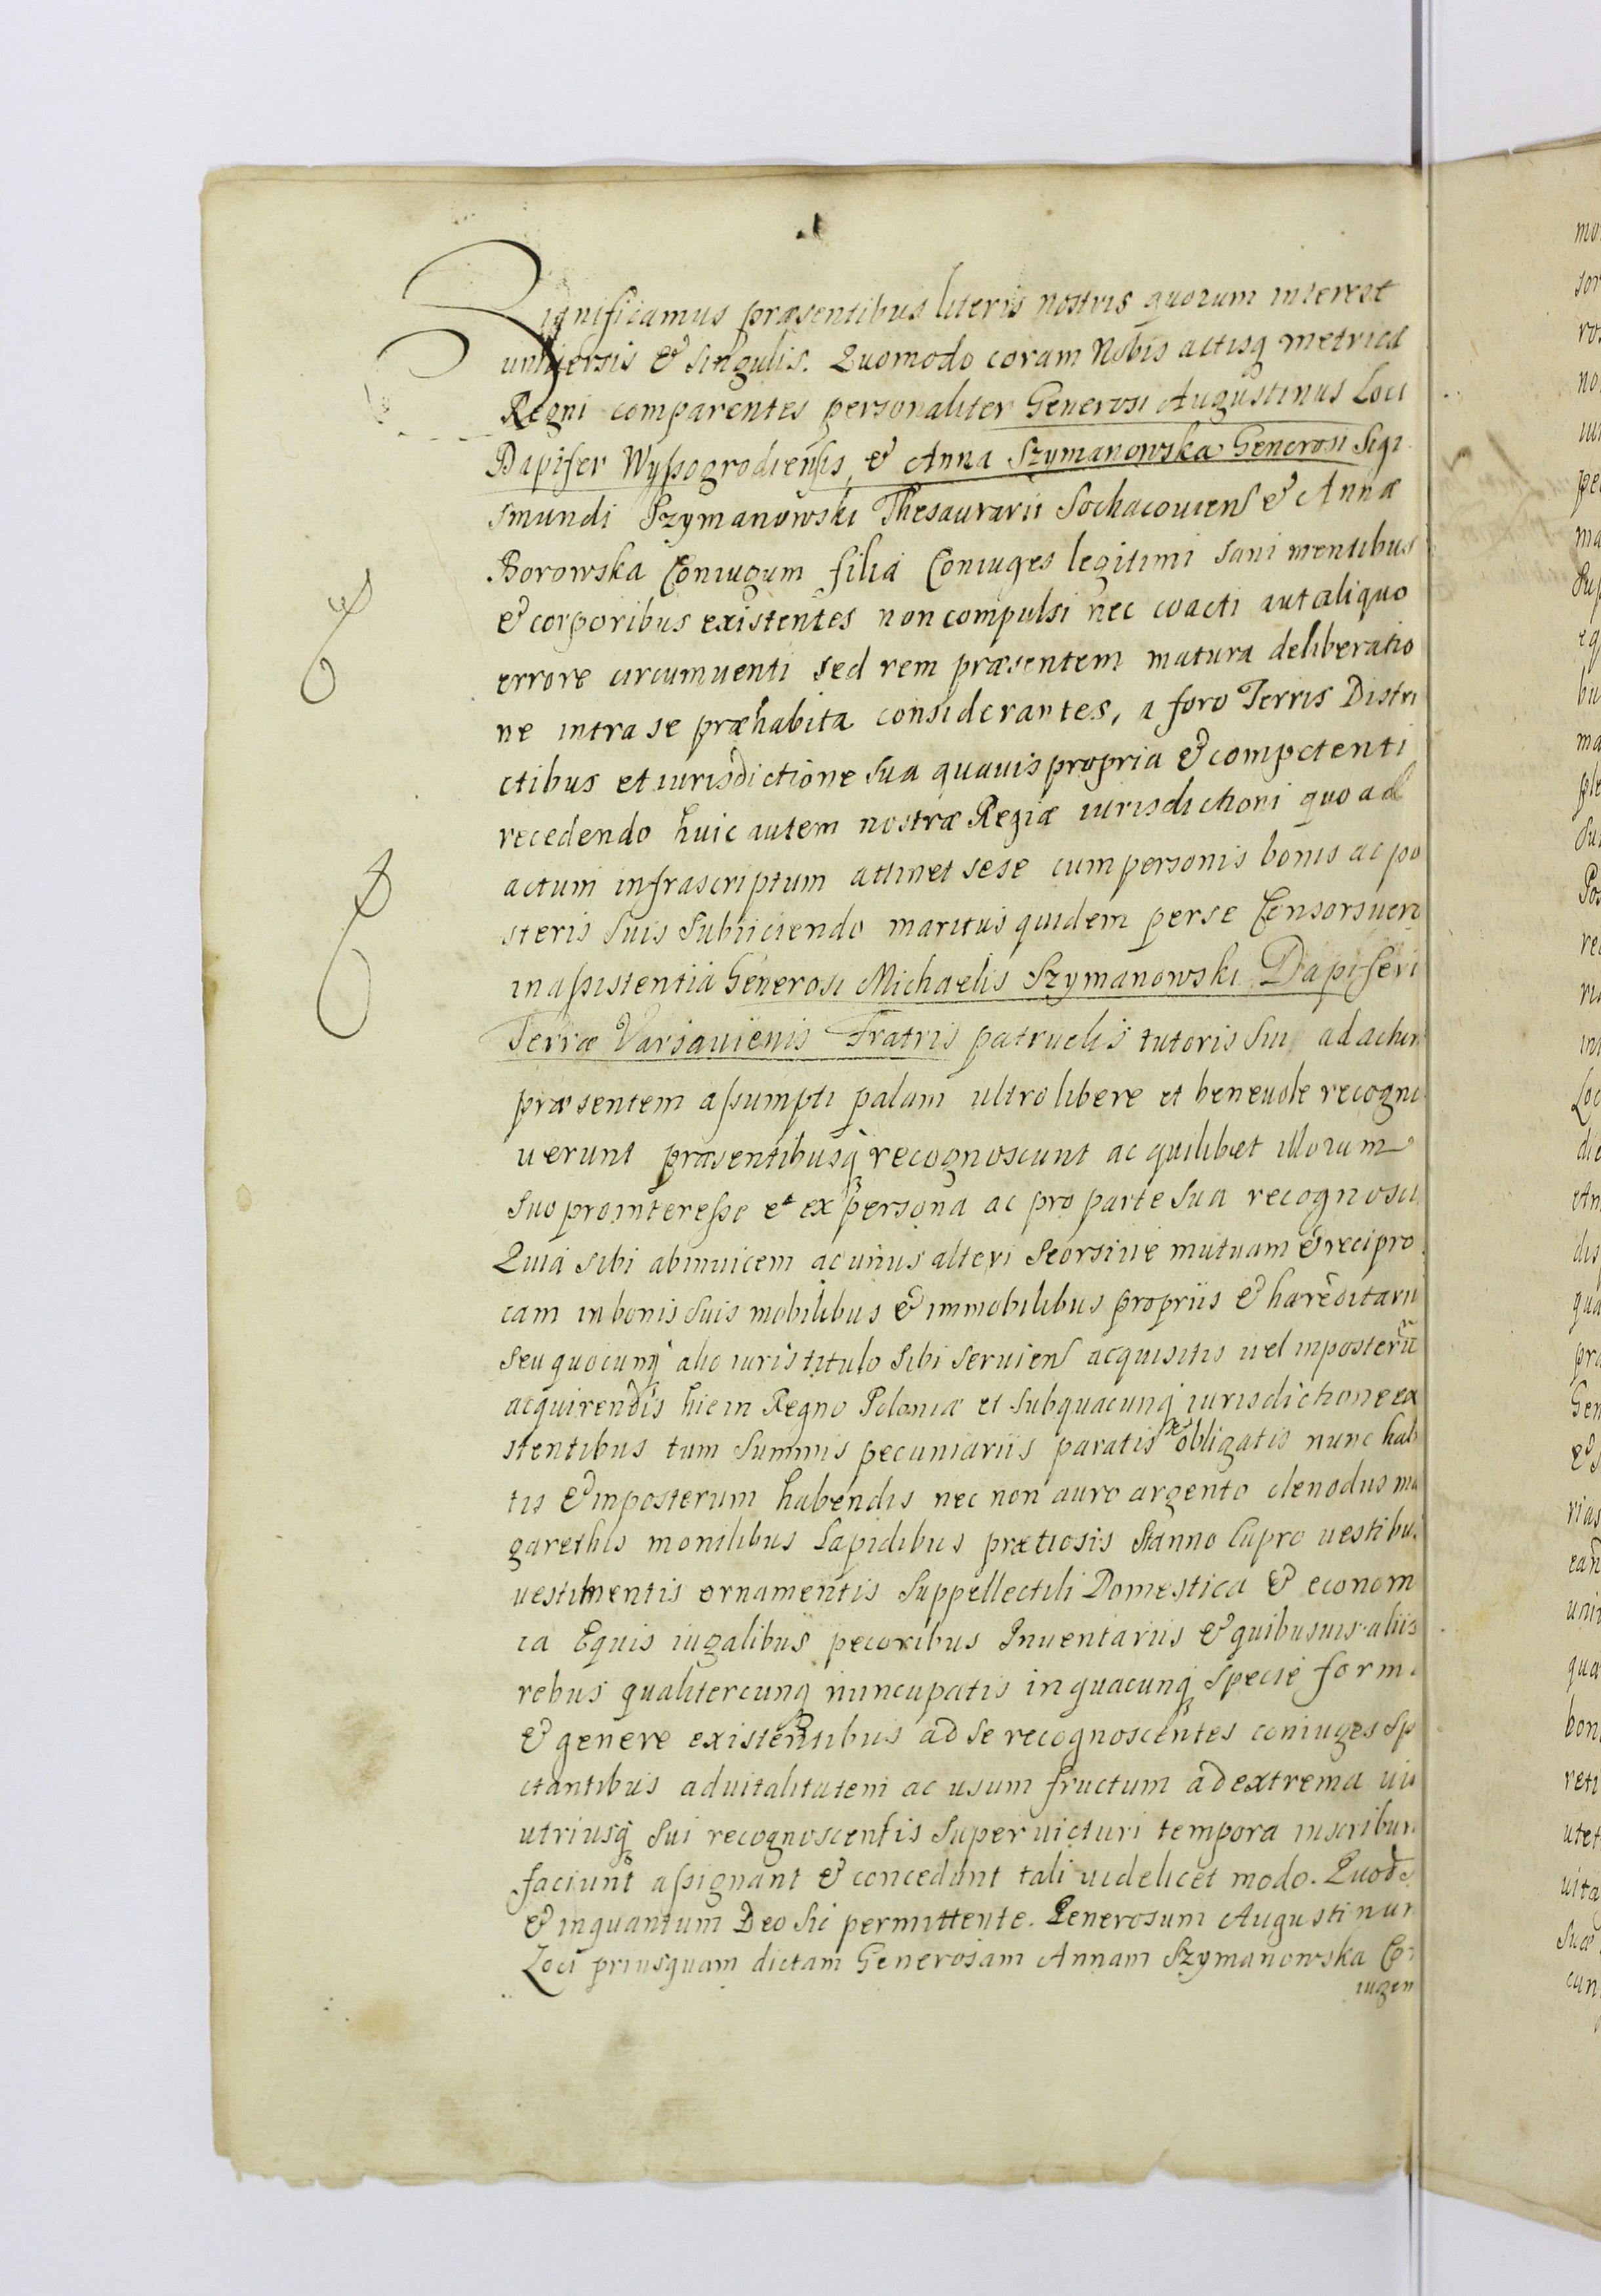 Significamus præsentibus literis nostris quorum interest
universis & singulis. Quomodo coram Nobis actisq metrica
Regni comparentes personaliter Generosi Augustinus Loci
Dapifer Wyssogrodiensis, & Anna Szymanowska Generosi Sigi
smundi Szymanowski Thesaurarii Sochacouiens & Annæ
Borowska Coniugum filia Coniuges legitimi sani mentibus
& corporibus existentes non compulsi nec coacti aut aliquo
errore circumuenti sed rem præsentem matura deliberatio
ne intra se præhabita considerantes, a foro Terris Distri
ctibus et iurisdictione sua quauis propria & competenti
recedendo huic autem nostræ Regiæ iurisdictioni quo ad
actum infrascriptum attinet sese cum personis bonis ac po
steris suis subiiciendo maritus quidem per se Consors uero
in assistentia Generosi Michaelis Szymanowski Dapiferi
Terræ Varsauienis Fratris patruelis tutoris sui ad actum
præsentem assumpti palam ultro libere et beneuole recogno
uerunt præsentibusq recognoscunt ac quilibet illorum
suo pro interesse et ex persona ac pro parte sua recognosci
Quia sibi abinuicem ac unus alteri seorsiue mutuam & recipro
cam in bonis suis mobilibus & immobilibus propriis & hæreditariis
seu quocunq alio iuris titulo sibi seruiens acquisitis uel inposterũ
acquirendis hic in Regno Poloniæ et sub quacunq iurisdictione exi
stentibus tum summis pecuniariis paratis & obligatis nunc habi
tis & inposterum habendis nec non auro argento clenodiis ma
garethis monilibus Lapidibus prætiosis Stanno Cupro uestibus
uestimentis ornamentis suppellectili Domestica & econom
ica Equis iugalibus pecoribus Inuentariis & quibusuis aliis
rebus qualitercunq nuncupatis in quacunq specie forma
& genere existentibus ad se recognoscentes coniuges spe
ctantibus aduitalitatem ac usum fructum ad extrema uitæ
utriusq sui recognoscentis superuicturi tempora inscribunt
faciunt assignant & concedunt tali uidelicet modo. Quod si
& inquantum Deo sic permittente. Generosum Augustinum
Loci priusquam dictam Generosam Annam Szymanowska Con
iugem